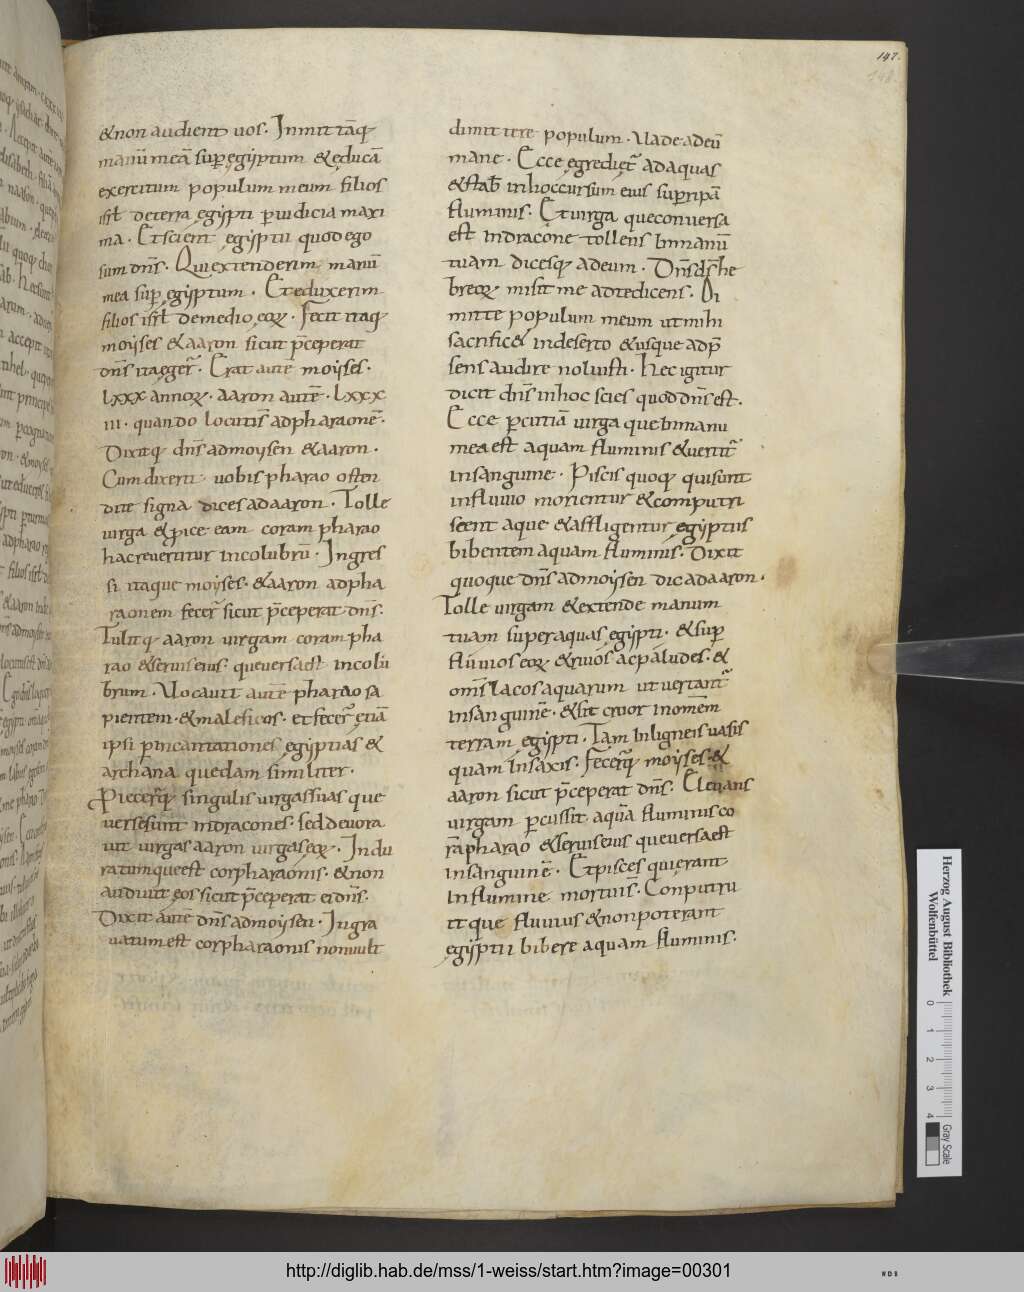 147.
&non audient uos. Inmittāq;
manū meā sup egiptum &educā
exercitum populum meum filios
isrł deterra egipti p iudicia maxi
ma. Etscient egiptii quodego
sum dn̄s. Qui extenderim manū
mea sup egiptum. Et eduxerim
filios isrł demedio eoꝝ. Fecit itaq;
moises &aaron sicut p̄ceperat
dn̄s ita eger̄. Erat autē moises.
lxxx annoꝝ. aaron autē. lxxx
iii. quando locuti s̄ adpharaonē.
Dixitq; dn̄s admoysen &aaron.
Cum dixerit uobis pharao osten
dite signa dices adaaron. Tolle
uirga &pice eam coram pharao
hac reuertitur incolubrū. Ingres
si itaque moyses. &aaron adpha
raonem fecer̄ sicut p̄ceperat dn̄s.
Tulitq; aaron uirgam coram pha
rao &seruis eius. que uersaest incolu
brum. Uocauit autē pharao sa
pientem. &maleficos. et fecer̄ etiā
ipsi p incantationes egiptias &
archana quedam similiter.
Piecer̄q; singulis uirgas suas que
uersesunt indracones. sed deuora
uit uirgas aaron uirgas eoꝝ. Indu
ratumqueest corpharaonis. &non
audiuit eos sicut p̄ceperat eidn̄s.
Dixit autē dn̄s admoysen. Ingra
uatum est corpharaonis nonuult
dimittere populum. Uade adeū
mane. Ecce egrediet̄ adaquas
&stab̄ inhoccursum eius sup ripā
fluminis. Et uirga queconuersa
est indracone tollens inmanū
tuam dicesq; adeum. Dn̄s d̄s he
breoꝝ misit me adte dicens. Di
mitte populum meum ut mihi
sacrific& indeserto &usque adp̄
sens audire noluisti. Hec igitur
dicit dn̄s inhoc scies quod dn̄s est.
Ecce p cutiā uirga que inmanu
mea est aquam fluminis &uertit̄
insanguine. Piscis quoq; quisunt
influuio morientur &computri
scent aque &affligentur egiptiis
bibentem aquam fluminis. Dixit
quoque dn̄s admoysen dic adaaron.
Tolle uirgam &extende manum
tuam super aquas egipti. &sup
fluuios eoꝝ &riuos ac paludes. &
om̄s lacos aquarum ut uertant̄
insanguinē. &sit cruor inomēm
terram egipti. Tam inligneis uasis
quam insaxis. Fecer̄q; moyses. &
aaron sicut p̄ceperat dn̄s. Eleuans
uirgam p cussit aquā fluminis co
rā pharao &seruis eius queuersaest
insanguinē. Et pisces quierant
influmine mortui s̄. Conputru
itque fluuius &nonpoterant
egiptii bibere aquam fluminis.
Herzog August Bibliothek
Wolfenbüttel
0 1 2 3 4
Gray Scale
http://diglib.hab.de/mss/1-weiss/start.htm?image=00301